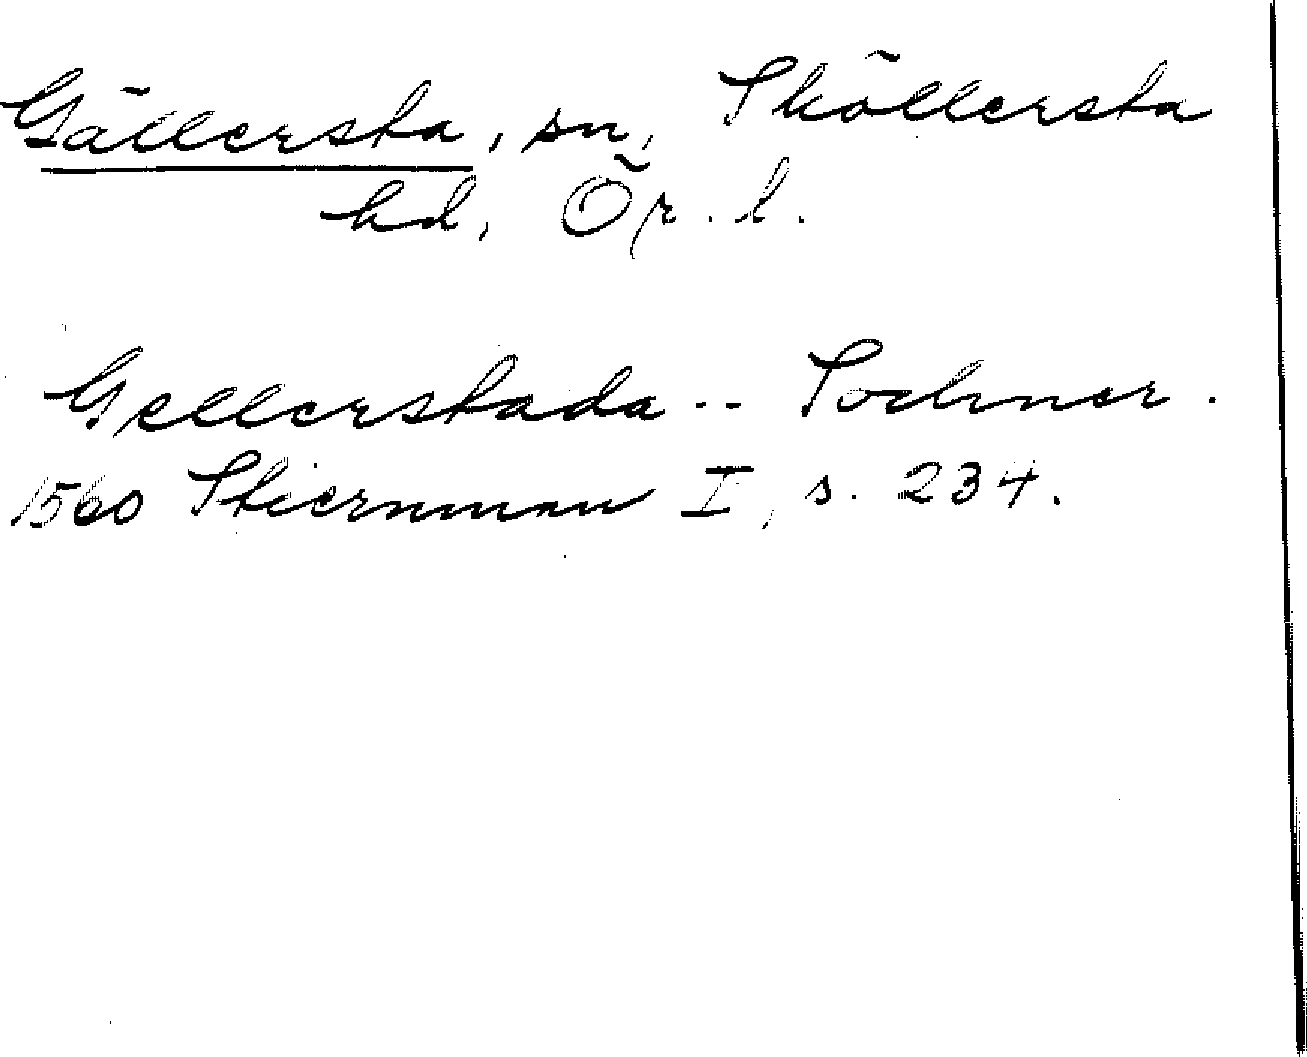 Gällersta, sn, Sköllersta
hd, Ör. l.
Gellerstada -- Sochner.
1560 Stiernman I, s. 234.